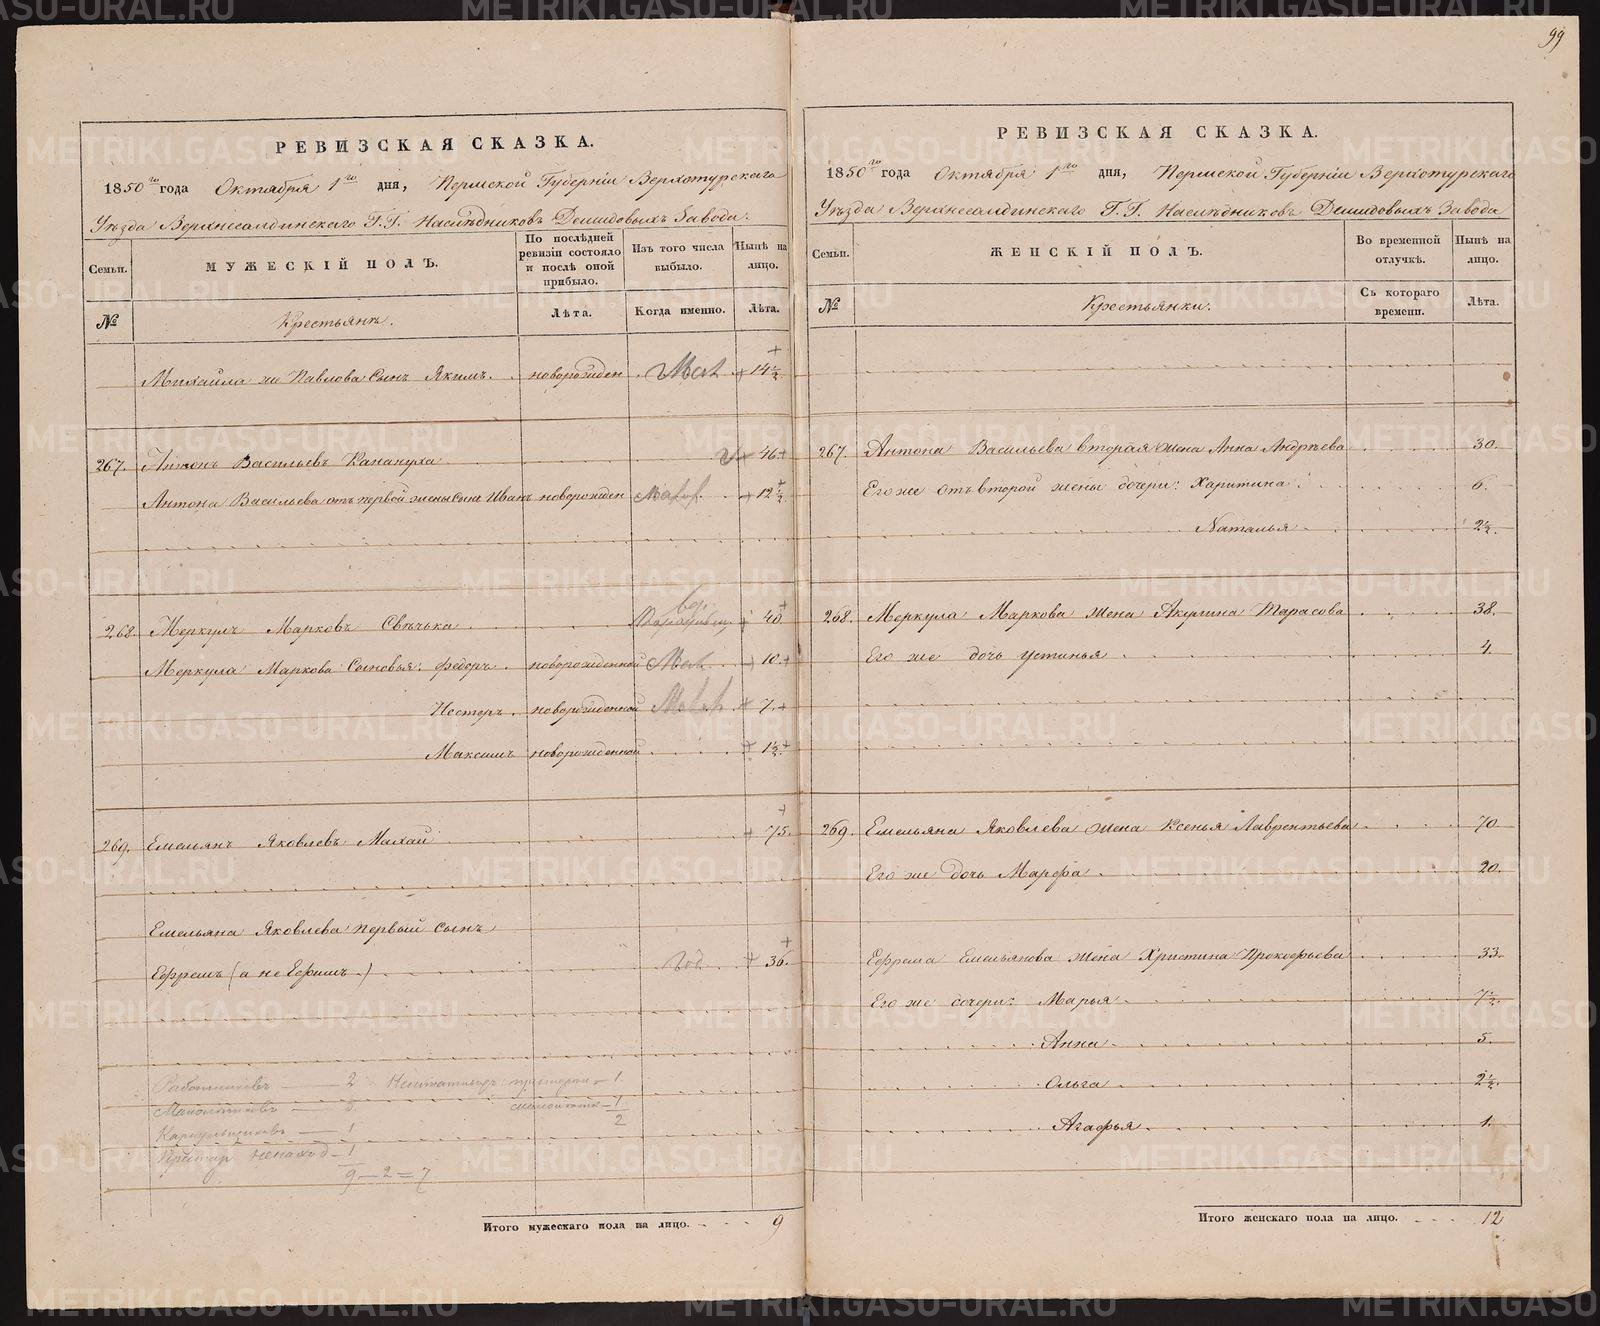 99
РЕВИЗСКАЯ СКАЗКА.
1850го года Октября 1го дня, Пермской Губерніи Верхотурскаго
Уѣзда Верхнесалдинскаго Г.Г. Наслѣдниковъ Демидовыхъ Завода.
Семьи. МУЖЕСКІЙ ПОЛЪ. По послѣдней ревизіи состояло и послѣ оной прибыло. Изъ того числа выбыло. Нынѣ на лицо.
№ Крестьянъ. Лѣта. Когда именно. Лѣта.
Михайла же Павлова сынъ Якимъ. новорожден 14½
267. Антонъ Васильевъ Канануха 46
Антона Васильева отъ первой жены сынъ Иванъ новорожден 12½
268. Меркулъ Марковъ Свѣчька 40
Меркула Маркова Сыновья: Федоръ новорожденной 10
Несторъ новорожденной 7
Максимъ новорожденной 1½
269. Емельянъ Яковлевъ Махай 75.
Емельяна Яковлева первый сынъ
Ефремъ (а не Ефимъ) 36.
Работниковъ — 2
— 1
— 1
2
— 1
— 1
9 — 2 = 7
Итого мужескаго пола на лицо. 9
РЕВИЗСКАЯ СКАЗКА.
1850го года Октября 1го дня, Пермской Губерніи Верхотурскаго
Уѣзда Верхнесалдинскаго Г.Г. Наслѣдниковъ Демидовыхъ Завода
Семьи. ЖЕНСКІЙ ПОЛЪ. Во временной отлучкѣ. Нынѣ на лицо.
№ Крестьянки. Съ котораго времени. Лѣта.
267. Антона Васильева вторая жена Анна Андрѣева 30.
Его же отъ второй жены дочери: Харитина 6.
Наталья 2½.
268. Меркула Маркова жена Акулина Тарасова 38.
Его же дочь Устинья 4.
269. Емельяна Яковлева жена Ксенья Лаврентьева 70
Его же дочь Марфа 20.
Ефрема Емельянова жена Христина Прокофьева 33.
Его же дочери: Марья 7½.
Анна 5.
Ольга 2½.
Агафья 1.
Итого женскаго пола на лицо. 12
METRIKI.GASO-URAL.RU